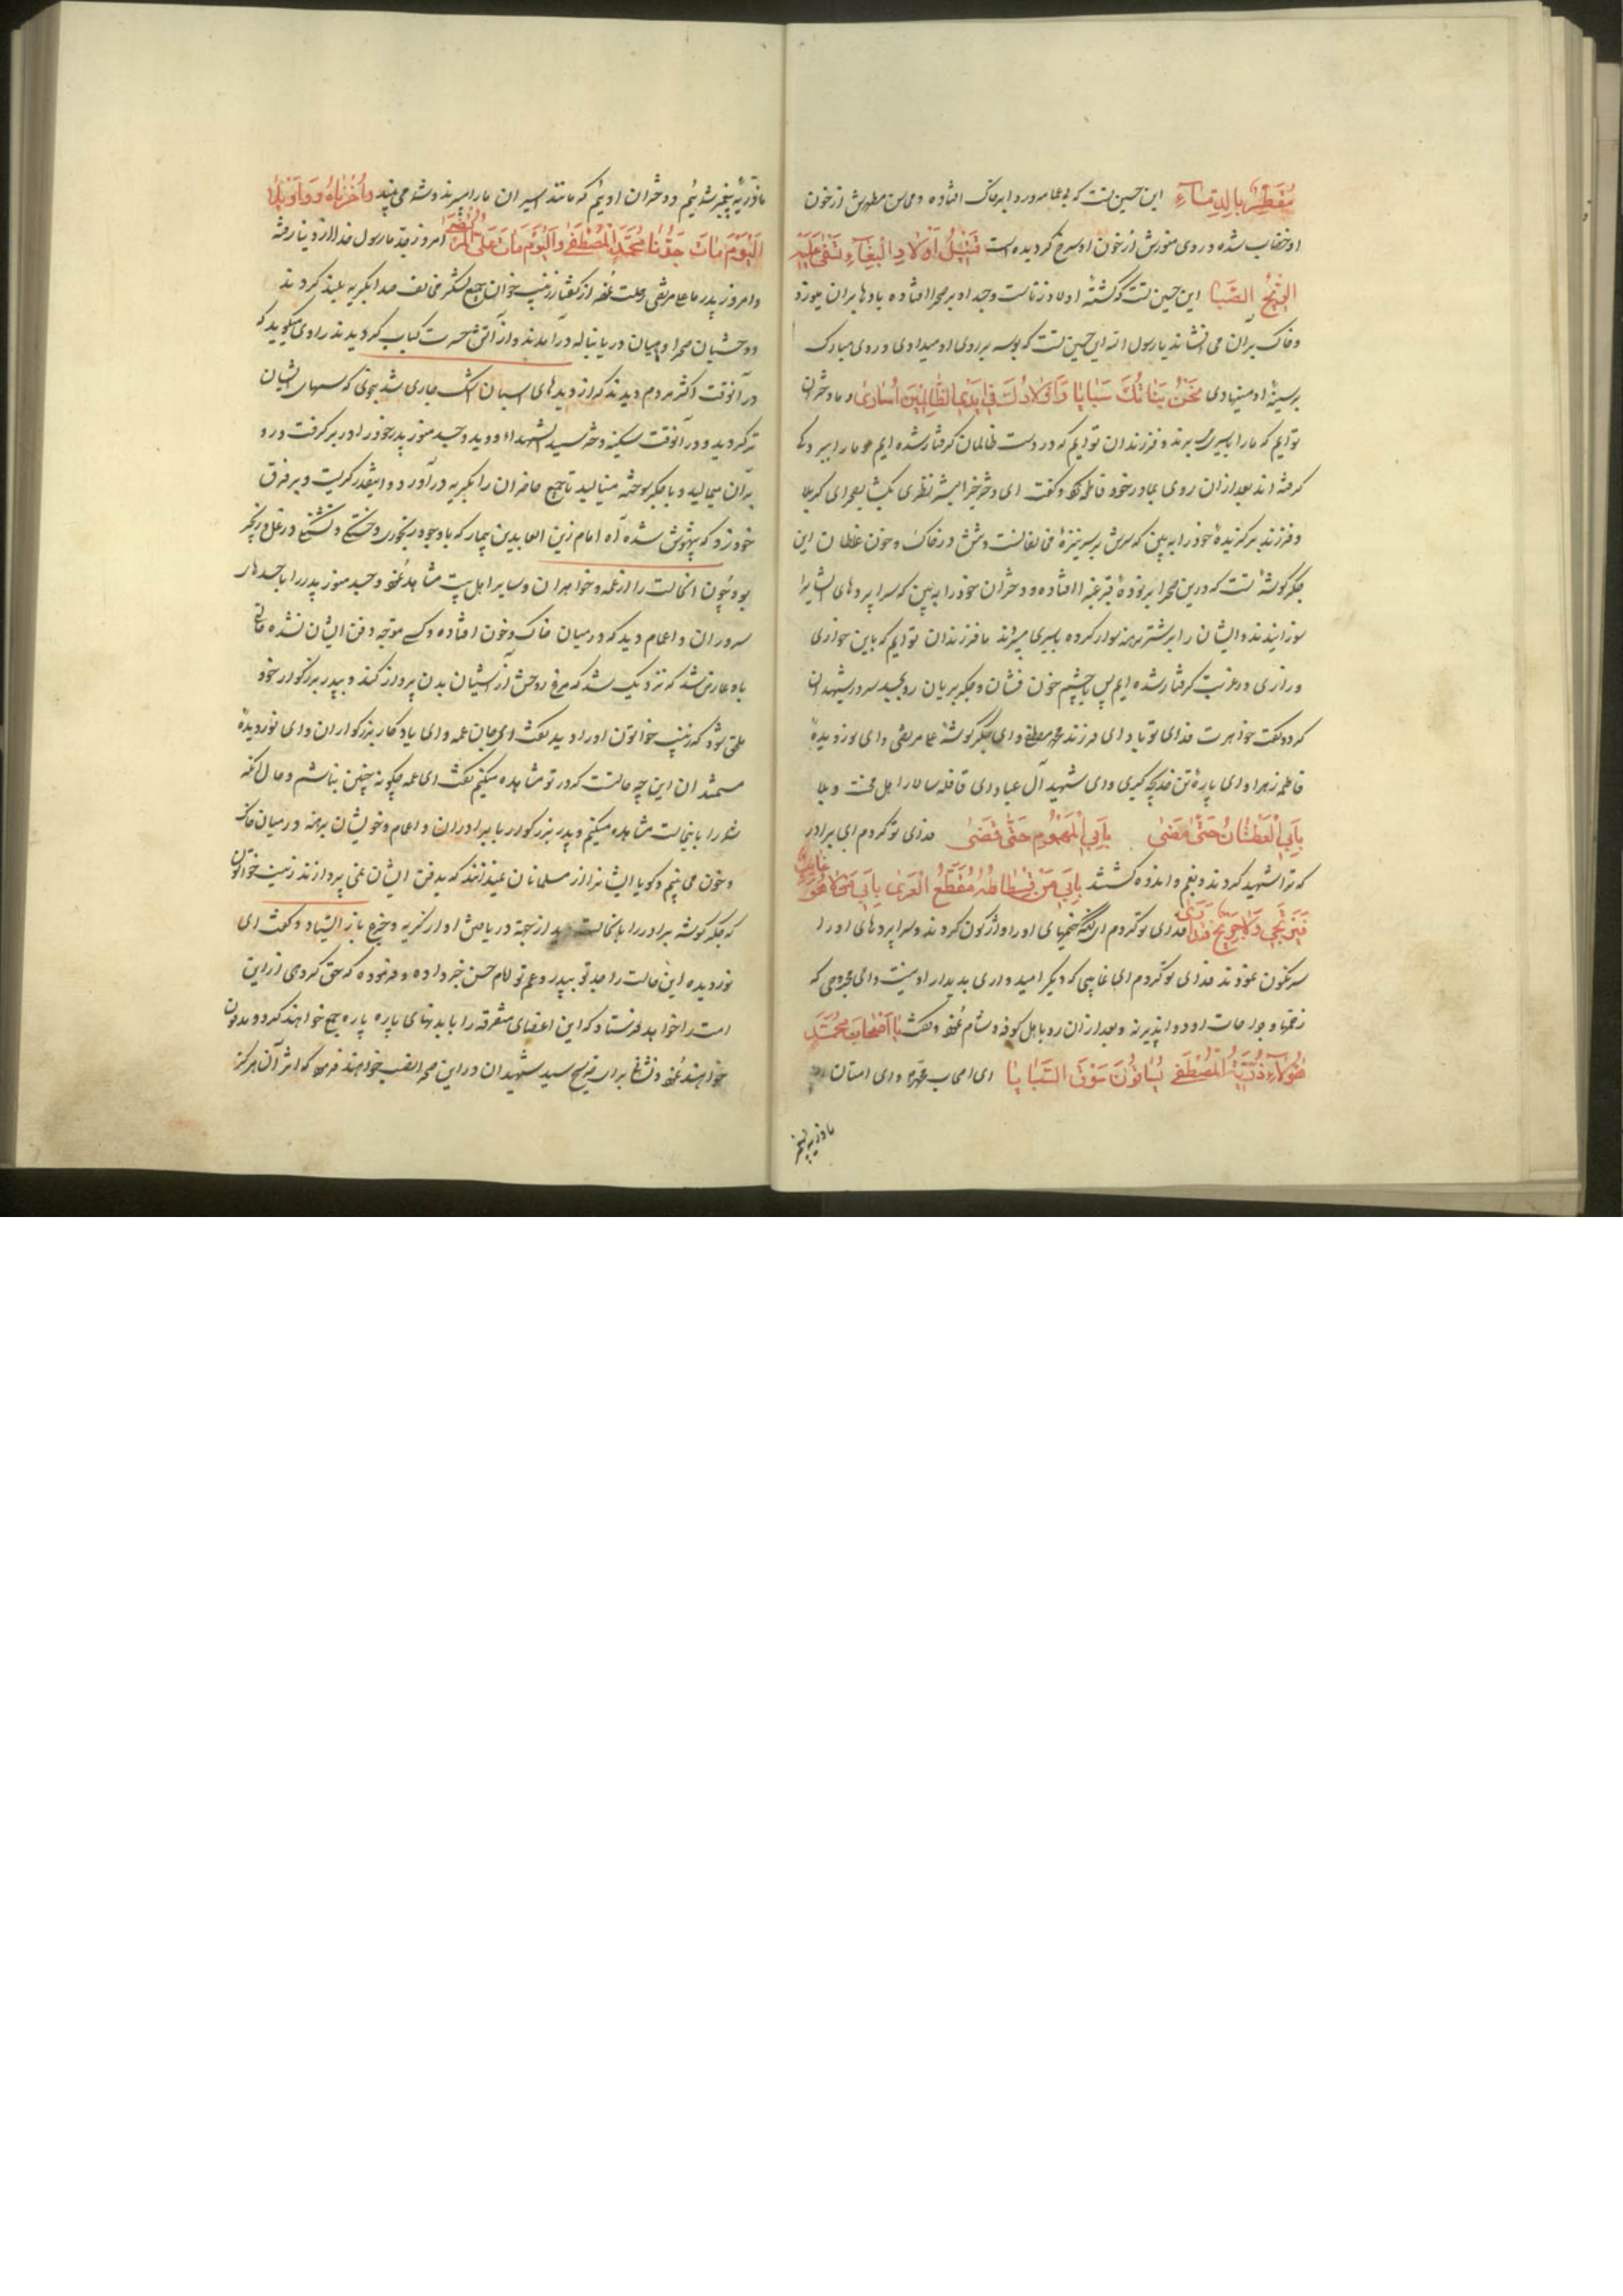 مُقَطَّرٌ بِالدِّمَآءِ این حسین تست که بی عمامه و ردا بر خاک افتاده و محاسن مطهرش از خون
او خضاب شده و روی منورش از خون او سرخ گردیده است قَتِیلُ اَوْلَادِ الْبَغَآءِ تَسْفِی عَلَیْهِ
الرِّیحُ الصَّبَا این حسین تست که کشته اولاد زناست و جسد او بر صحرا افتاده بادها بر ان میوزد
و خاک بر آن می افشاند یا رسول الله این حسین تست که بوسه بر روی او میدادی و روی مبارک
بر سینهٔ او مینهادی نَحْنُ بَنَاتُكَ سَبَایَا وَ اَوْلَادُكَ فِی اَیْدِی الظَّالِمِینَ اُسَارَی و ما دختران
توایم که ما را باسیری میبرند و فرزندان توایم که در دست ظالمان گرفتار شده ایم
گرفته اند بعد از ان روی بمادر خود فاطمه کرد و گفت ای دختر خیر البشر نظری بکشا بصحرای کربلا
و فرزند برگزیدهٔ خود را ببین که سرش بر سر نیزهٔ مخالفانست و تنش در خاک و خون غلطان این
جگر گوشهٔ تست که درین صحرا افتاده و دختران خود را ببین که سراپردهای ایشانرا
سوزانیدند و ایشان را بر شتر برهنه سوار کرده باسیری میبرند ما فرزندان توایم که باین خواری
و زاری در غربت گرفتار شده ایم پس با چشم خون فشان و جگر بریان رو بجسد سرور شهیدان
کرد و گفت خواهرت فدای تو باد ای فرزند محمد مصطفی و ای جگر گوشهٔ علی مرتضی و ای نور دیدهٔ
فاطمه زهرا و ای پارهٔ تن خدیجه کبری و ای شهید آل عبا و ای قافله سالار اهل محنت و بلا
بِاَبِی الْعَطْشَانُ حَتَّی مَضَی بِاَبِی الْمَهْمُومِ حَتَّی قَضَی فدای تو گردم ای برادر
که ترا شهید کردند و بغم و اندوه کشتند بِاَبِی مَنْ فُسْطَاطُهُ مُقَطَّعُ الْعُرَی بِاَبِی مَنْ لَا هُوَ غَائِبٌ
فَیُرْتَجَی وَ لَا جَرِیحٌ فَیُدَاوَی فدای تو گردم ای آنکه خیمهای او را واژگون کردند و سراپردهای او را
سرنگون نمودند فدای تو گردم ای غایبی که دیگر امیدواری بدیدار او نیست و ای مجروحی که
زخمها و جراحات او دوا پذیر نه و بعد از ان رو باهل کوفه و شام نموده و گفت یَا اَصْحَابَ مُحَمَّدٍ
هَؤُلَآءِ ذُرِّیَّةُ الْمُصْطَفَی یُسَاقُونَ سَوْقَ السَّبَایَا ای اصحاب محمد و ای امتان
ما ذریه پیغمبر
ما ذریهٔ پیغمبر شمائیم و دختران اوئیم که مانند اسیران ما را میبرند و شما می بینید وَا حُزْنَاهُ وَ وَاوَیْلَاهُ
اَلْیَوْمَ مَاتَ جَدُّنَا مُحَمَّدٌ الْمُصْطَفَی وَ الْیَوْمَ مَاتَ عَلِیٌّ الْمُرْتَضَی امروز جد ما رسول خدا از دنیا رفته
و امروز پدر ما علی مرتضی رحلت نموده از گفتار زینب خواتون جمیع لشکر مخالف صدا بگریه بلند کردند
و وحشیان صحرا و ماهیان دریا بناله درآمدند و از آتش حسرت کباب گردیدند راوی میگوید که
در آنوقت اکثر مردم دیدند که از دیدهای اسبان اشک جاری شد بنحوی که سمهای ایشان
تر گردید و در آنوقت سکینه دختر سید الشهداء دوید و جسد منور پدر خود را در بر گرفت و رو
بر آن میمالید و با جگر سوخته مینالید تا جمیع حاضران را بگریه درآورد و انقدر گریست و بر فرق
خود زد که بیهوش شد آه امام زین العابدین بیمار که با وجود رنجوری و خستگی و تشنگی در غل و زنجیر
بود چون انحالت را از عمه و خواهران و سایر اهل بیت مشاهده نموده و جسد منور پدر را با جسدهای
سروران و اعمام دید که در میان خاک و خون افتاده و کسی متوجه دفن ایشان نشده حالتی
باو عارض شد که نزدیک شد که مرغ روحش از آشیان بدن پرواز کند و بپدر بزرگوار خود
ملحق شود که زینب خواتون او را دید گفت ای جان عمه و ای یادگار بزرگواران و ای نور دیدهٔ
مستمندان این چه حالتست که در تو مشاهده میکنم گفت ای عمه چگونه چنین نباشم و حال آنکه
شما را باینحالت مشاهده میکنم و پدر بزرگوار را با برادران و اعمام و خویشان برهنه در میان خاک
و خون می بینم و گویا ایشانرا از مسلمانان نمیدانند که بدفن ایشان نمی پردازند زینب خواتون
که جگر گوشه برادر را باینحالت دید از جهة دریافتن او از گریه و جزع باز ایستاد و گفت ای
نور دیده این حالت را جد تو بپدر و عم تو امام حسن خبر داده و فرموده که حق گروهی از این
امت را خواهد فرستاد که این اعضای متفرقه را با بدنهای پاره پاره جمع خواهند کرد و مدفون
خواهند نمود و نشانه برای ضریح سید شهیدان در این صحرا نصب خواهند فرمود که اثر آن هرگز